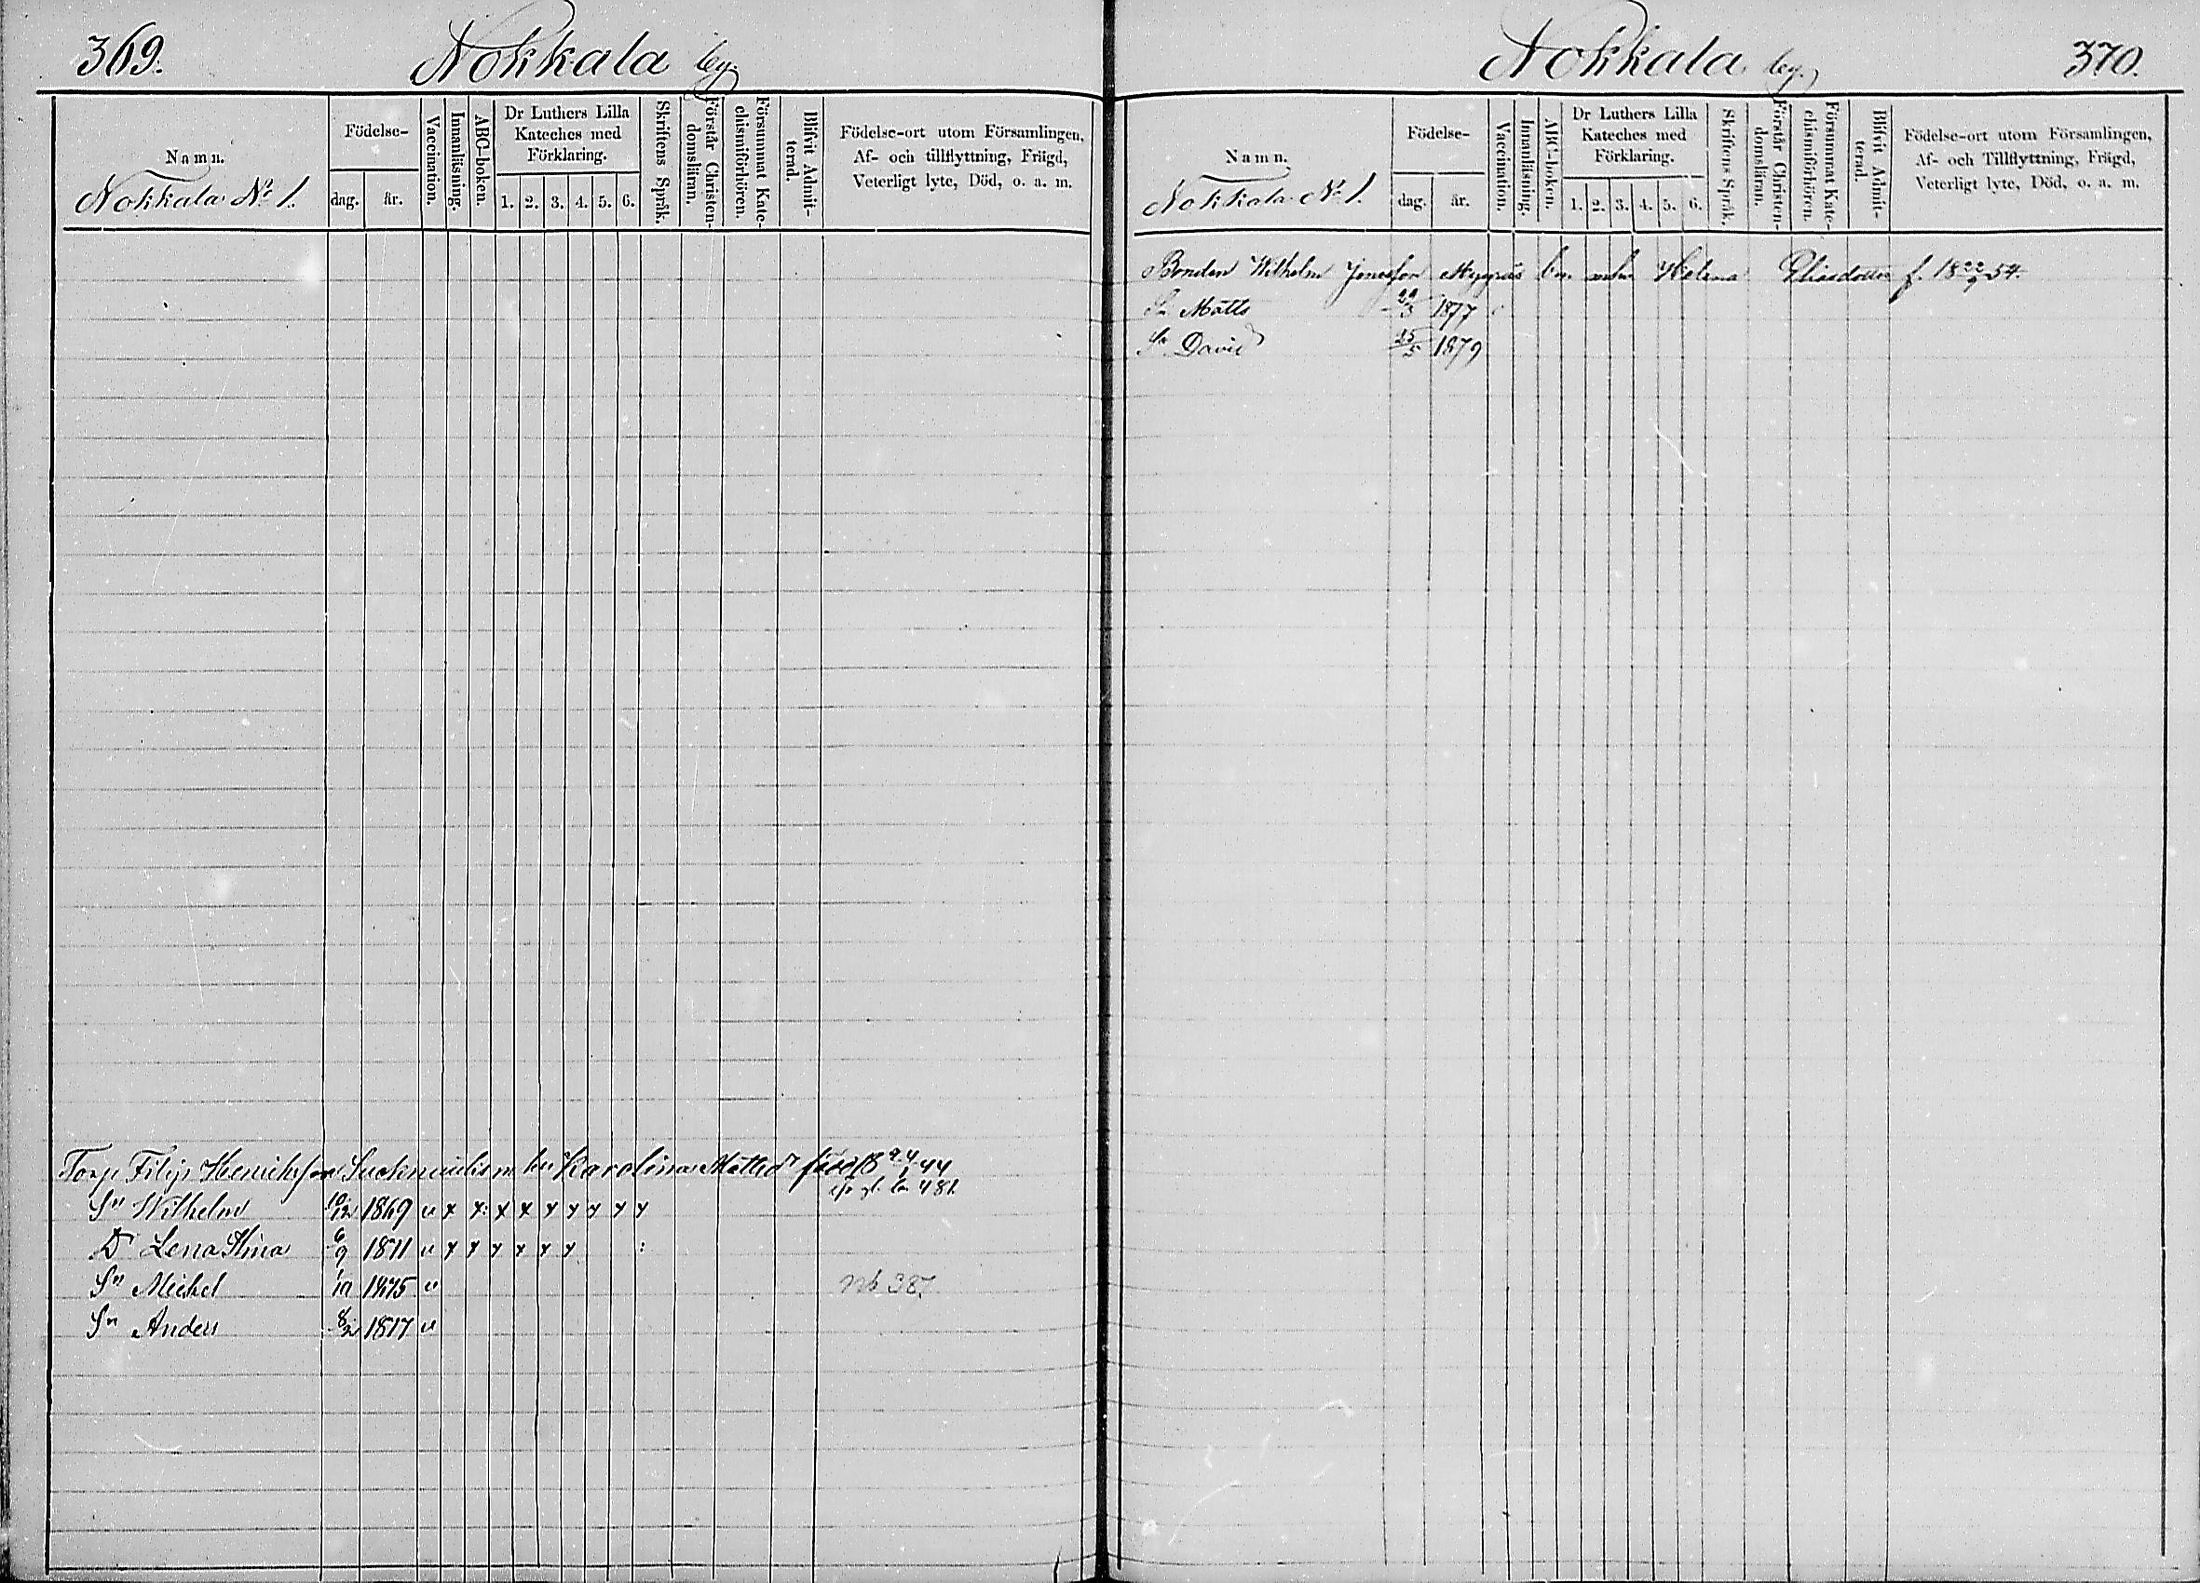 369.
Nokkala by.
Namn.
Nokkala No 1.
Födelse-
dag.
år.
Vaccination.
Innanläsning.
ABC-boken.
Dr Luthers Lilla
Kateches med
Förklaring.
1. 2. 3. 4. 5. 6.
Skriftens Språk.
Förstår Christen-
domsläran.
Försummat Kate-
chismiförhören.
Blifvit Admit-
terad.
Födelse-ort utom Församlingen,
Af- och tillflyttning, Frägd,
Veterligt lyte, Död, o. a. m.
Torp Filip Henriksson hu Karolina Mattsdr född 18 24/1 44
481.
Sn Wilhelm 10/12 1869 u x x: x x x x x x x
Dr Lena Stina 6/9 1871 u x x x x x x :
Sn Mickel 1/10 1875 u No 387.
Sn Anders 8/2 1877 u
Nokkala by.
370.
Namn.
Nokkala No 1.
Födelse-
dag.
år.
Vaccination.
Innanläsning.
ABC-boken.
Dr Luthers Lilla
Kateches med
Förklaring.
1. 2. 3. 4. 5. 6.
Skriftens Språk.
Förstår Christen-
domsläran.
Försummat Kate-
chismiförhören.
Blifvit Admit-
terad.
Födelse-ort utom Församlingen,
Af- och Tillflyttning, Frägd,
Veterligt lyte, Död, o. a. m.
Bonden Wilhelm Jonasson Helena Eliasdotter f. 18 22/9 54.
Sn Matts 1877
Sn David 25/5 1879